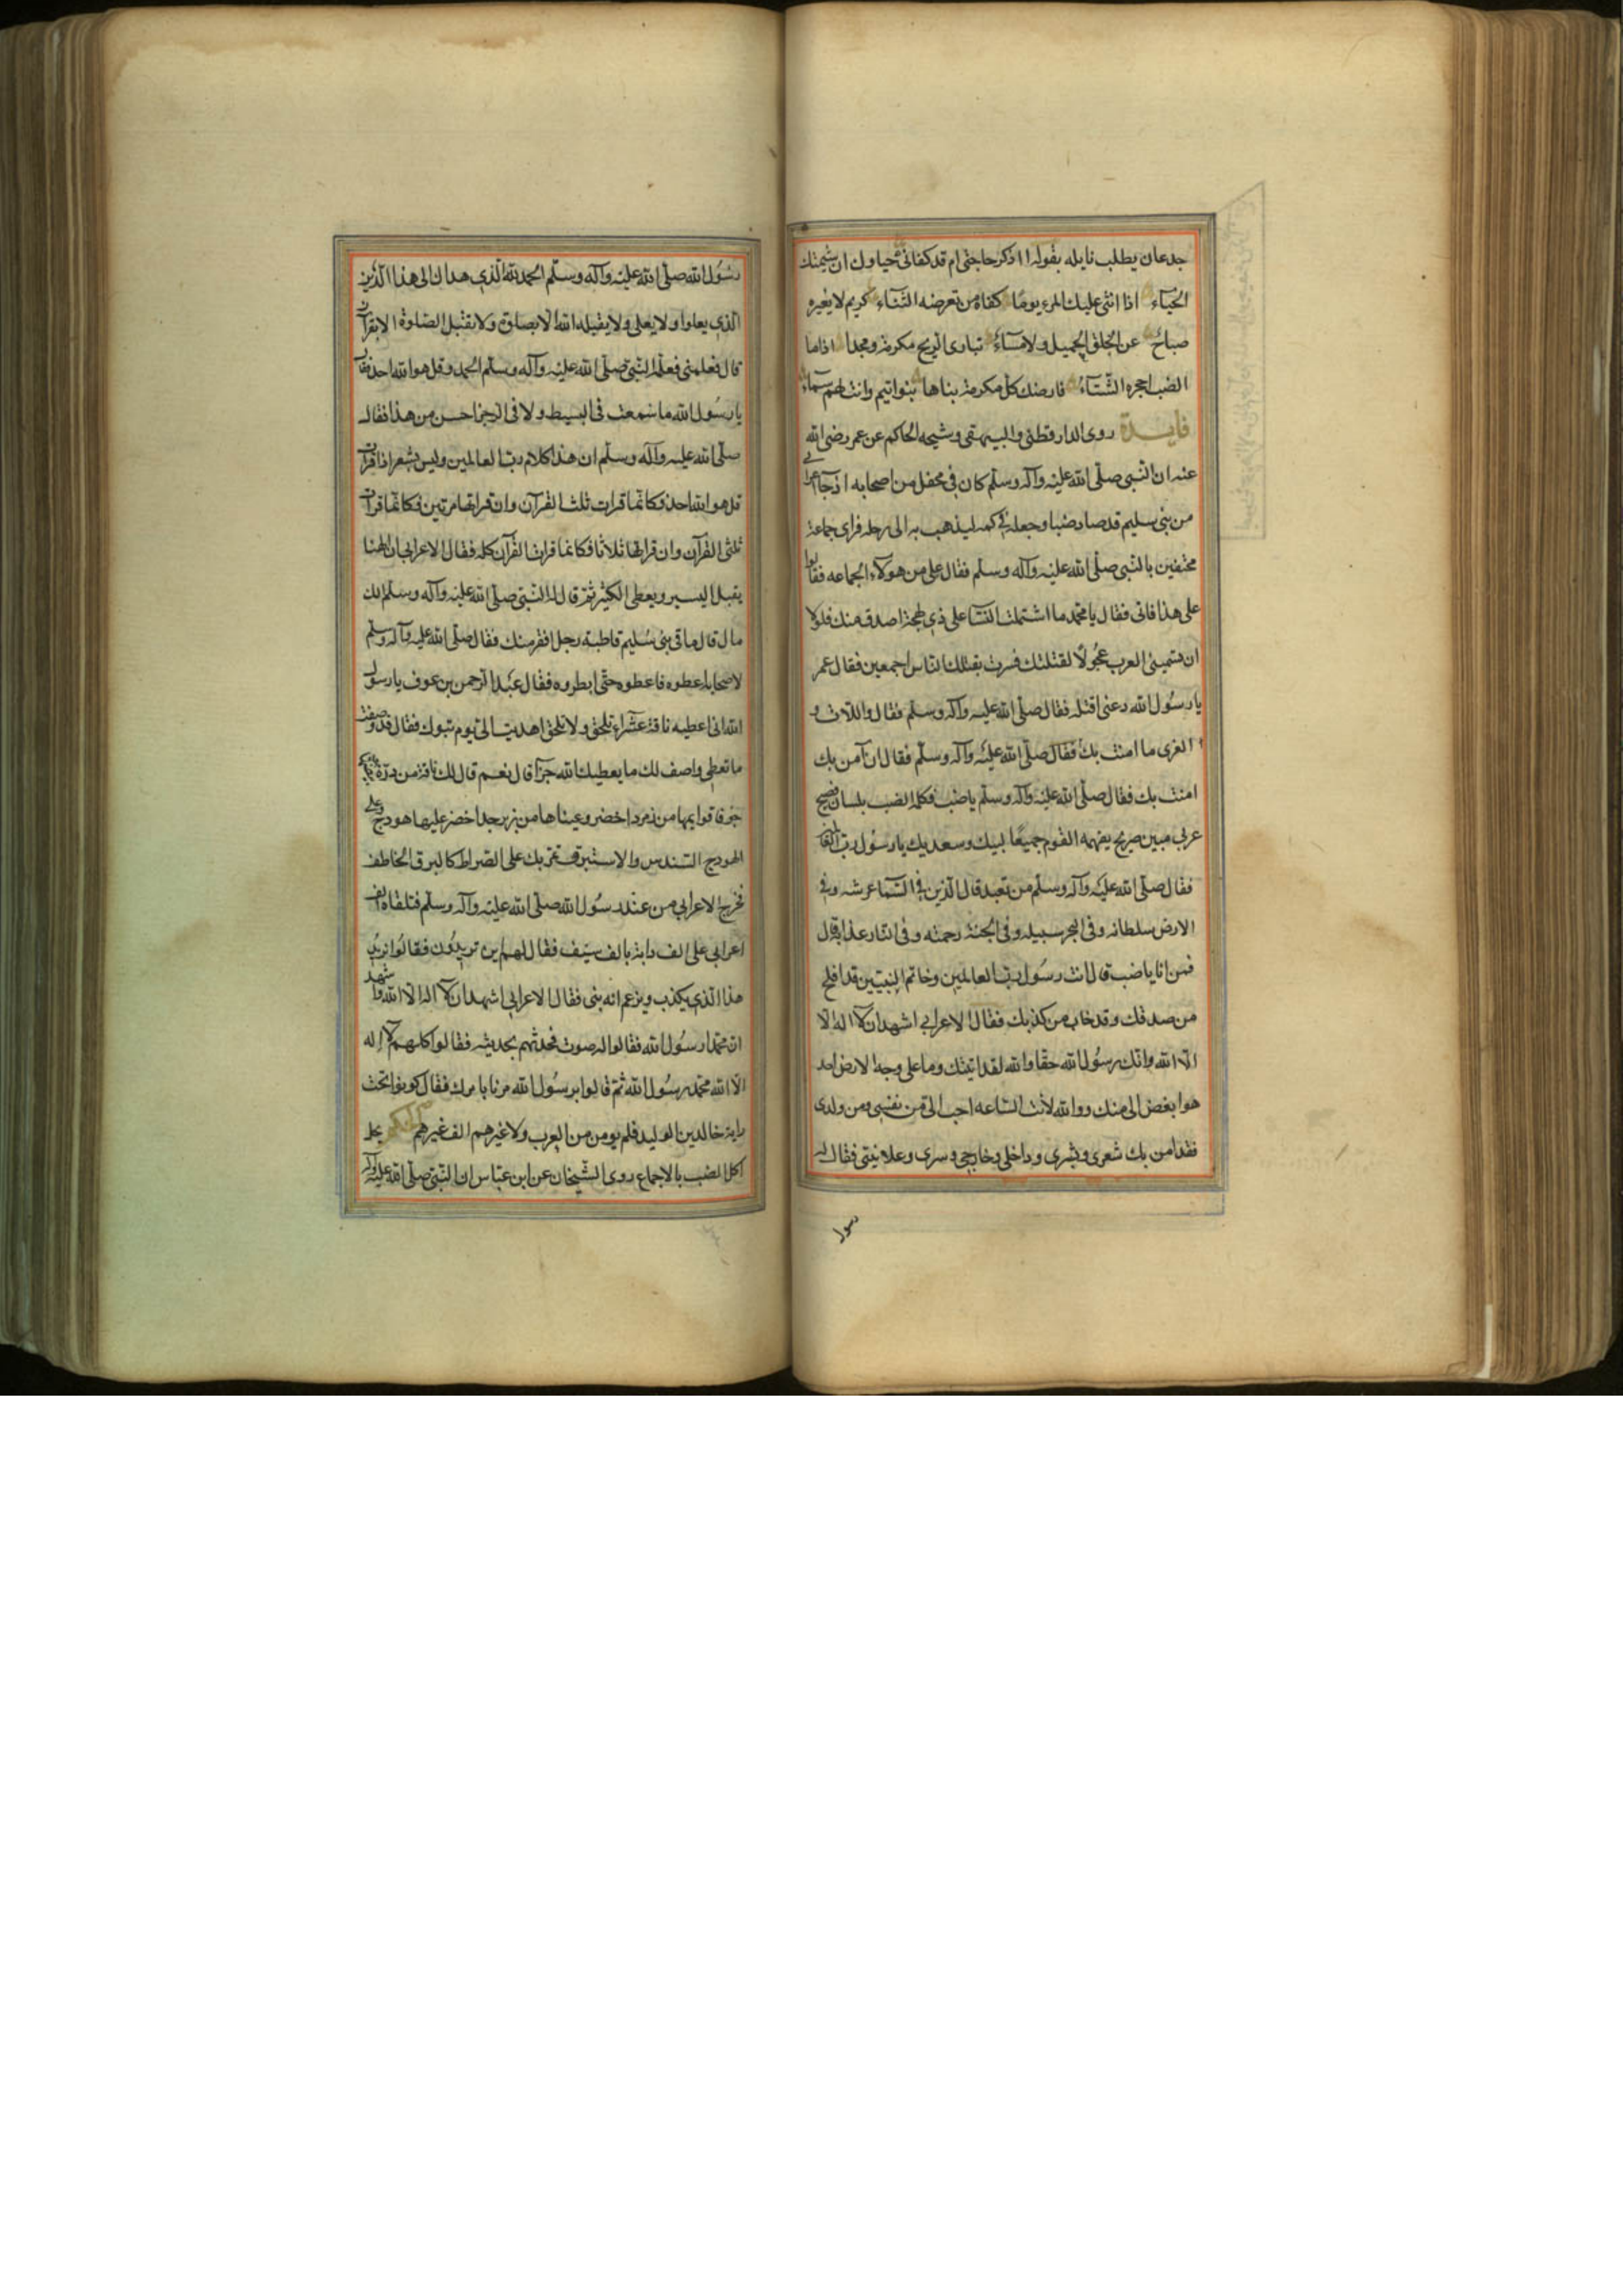 جدعان يطلب نايله بقوله أاذكر حاجتي ام قد كفاني حياوك ان شيمتك
الحيآء اذا اثنى عليك المرء يومًا كفاه من تعرضه الثنآء كريم لا يغيره
صباحٌ عن الخلق الجميل ولا مسآءُ تبارى الريح مكرمة ومجدا اذا ما
الضب اجحره الشتآءُ فارضك كل مكرمة بناها بنوا تيم وانت لهم سمآء
فايدة روى الدارقطني والبيهقي وشيخه الحاكم عن عمر رضي الله
عنه ان النبي صلّى الله عليه وآله وسلّم كان في محفل من اصحابه اذ جآ اعرابي
من بني سليم قد صاد ضبا وجعله في كمه ليذهب به الى رحله فراى جماعة
محتفين بالنبي صلّى الله عليه وآله وسلّم فقال على من هولآء الجماعه فقالوا
على هذا فاتى فقال يا محمد ما اشتملت النسا على ذي لهجة اصدق منك فلولا
ان تسميني العرب عجُولًا لقتلتك فسرت بقتلك الناس اجمعين فقال عمر
يا رسُول الله دعني اقتله فقال صلّى الله عليه وآله وسلّم فقال واللات و
العزى ما امنت بك فقال صلّى الله عليه وآله وسلّم فقال ان آمن بك
امنت بك فقال صلّى الله عليه وآله وسلّم يا ضب فكله الضب بلسان فصيح
عربي مبين صريح يفهمه القوم جميعًا لبيك وسعديك يا رسُول رب العا
فقال صلّى الله عليه وآله وسلّم من تعبد قال الذين في السّما عرشه وفي
الارض سلطانه وفي البحر سبيله وفي الجنة رحمته وفي النار عذابه قال
فمن انا يا ضب قال انت رسُول رب العالمين وخاتم النبيّين قد افلح
من صدقك وقد خاب من كذبك فقال الاعرابي اشهد ان لا اله الا
الّا الله وانك رسُول الله حقا والله لقد اتيتك وما على وجه الارض احد
هو ابغض الى منك ووالله لأنت الساعه احب الى من نفسي ومن ولدى
فقد امن بك شعرى وبشرى وداخلي وخارجي وسرى وعلانيتى فقال له
رسول
رسُول الله صلّى الله عليه وآله وسلّم الحمد لله الّذي هداك الى هذا الدّين
الّذي يعلوا ولا يعلى ولا يقبله الله الا بصلوة ولا يقبل الصّلوة الا بقرآن
قال فعلمني فعلّمه النّبي صلّى الله عليه وآله وسلّم الحمد وقل هو الله احد فقال
يا رسُول الله ما سمعت في البسيط ولا في الرجز احسن من هذا فقال
صلّى الله عليه وآله وسلّم ان هذا كلام رب العالمين وليس بشعر اذا قرات
قل هو الله احد فكانّما قرات ثلث القرآن وان قراتها مرتين فكانّما قرات
ثلثى القرآن وان قراتها ثلاثا فكانما قرات القرآن كله فقال الاعرابي ان الهنا
يقبل اليسير ويعطى الكثير ثم قال له النّبي صلّى الله عليه وآله وسلم الك
مال قال ما في بني سُليم قاطبة رجل افقر منك فقال صلّى الله عليه وآله وسلّم
لاصحابه اعطوه فاعطوه حتّى ابطروه فقال عبد الرّحمن بن عوف يا رسول
الله اني اعطيه ناقة عشرآء تلحق ولا تلحق اهديت الى يوم تبوك فقال قد وصفت
ما تعطى واصف لك ما يعطيك الله جزآ قال نعم قال لك ناقة من درة
جوفا قوايمها من زمرد اخضر وعيناها من زبرجد اخضر عليها هودج وعلى
الهودج السّندس والاستبرق تمر بك على الصّراط كالبرق الخاطف
فخرج الاعرابي من عند رسُول الله صلّى الله عليه وآله وسلّم فتلقاه الف
اعرابي على الف دابة بالف سيَف فقال لهم اين تريدُون فقالُوا نريدُ
هذا الّذي يكذب ويزعم انه نبى فقال الاعرابي اشهد ان لآ اله الّا الله واشهد
ان محمّدا رسُول الله فقالوا له صبوت فحدثهم بحديثه فقالوا كلهم لآ إله
الّا الله محمّد رسُول الله ثمّ قالوا يرسُول الله مرنا بامرك فقال كونوا تحت
راية خالد بن الوليد فلم يومن من العرب ولا غيرهم الف غيرهم يحل
اكل الضب بالاجماع روى الشّيخان عن ابن عبّاس ان النّبي صلّى الله عليه وآله